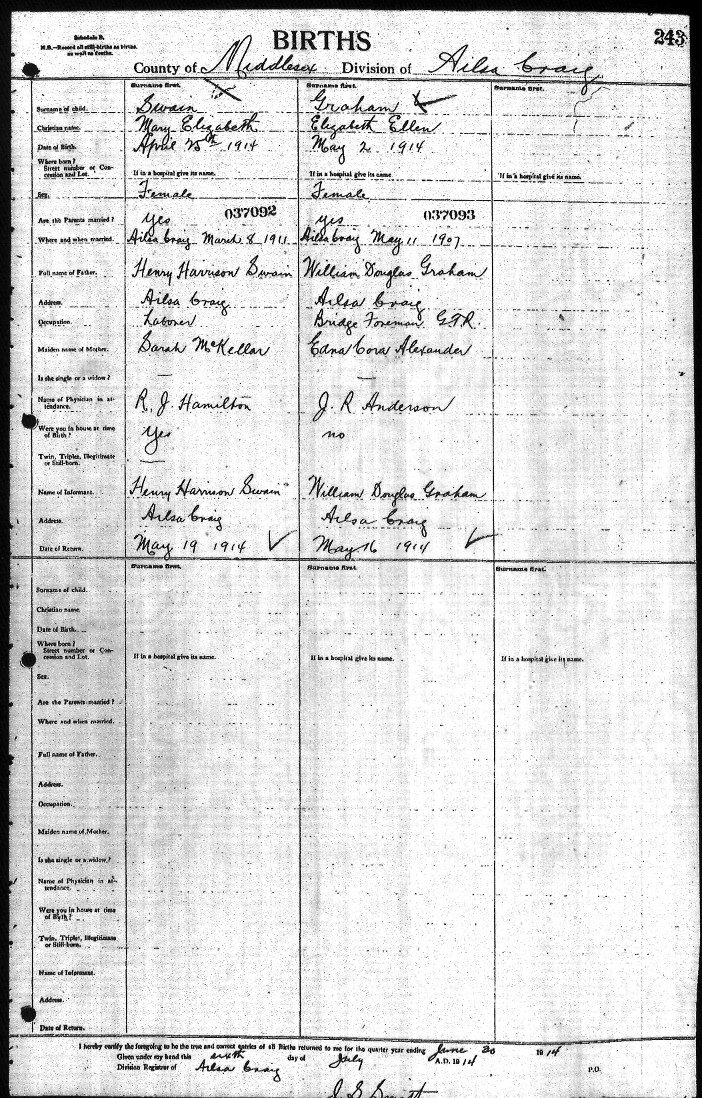 Schedule B.
N.B.—Record all still-births as births, as well as deaths.
BIRTHS
243
County of Middlesex Division of Ailsa Craig
Surname first. Surname first. Surname first.
Surname of child. Swain Graham
Christian name. Mary Elizabeth Elizabeth Ellen
Date of Birth. April 25th 1914 May 2 1914
Where born?
Street number or Concession and Lot. If in a hospital give its name. If in a hospital give its name If in a hospital give its name.
Sex. Female Female
Are the Parents married? yes 037092 yes 037093
Where and when married. Ailsa Craig March 8 1911 Ailsa Craig May 11 1907
Full name of Father. Henry Harrison Swain William Douglas Graham
Address. Ailsa Craig Ailsa Craig
Occupation. Laborer Bridge Foreman G.T.R.
Maiden name of Mother. Sarah McKellar Edna Cora Alexander
Is she single or a widow? — —
Name of Physician in attendance. R. J. Hamilton J. R Anderson
Were you in house at time of Birth? Yes no
Twin, Triplet, Illegitimate or Still-born. —
Name of Informant. Henry Harrison Swain William Douglas Graham
Address. Ailsa Craig Ailsa Craig
Date of Return. May 19 1914 May 16 1914
Surname first. Surname first. Surname first.
Surname of child.
Christian name.
Date of Birth.
Where born?
Street number or Concession and Lot. If in a hospital give its name. If in a hospital give its name. If in a hospital give its name.
Sex.
Are the Parents married?
Where and when married.
Full name of Father.
Address.
Occupation.
Maiden name of Mother.
Is she single or a widow?
Name of Physician in attendance.
Were you in house at time of Birth?
Twin, Triplet, Illegitimate or Still-born.
Name of Informant.
Address.
Date of Return.
I hereby certify the foregoing to be the true and correct entries of all Births returned to me for the quarter year ending June 30 1914
Given under my hand this sixth day of July A.D. 1914
Division Registrar of Ailsa Craig P.O.